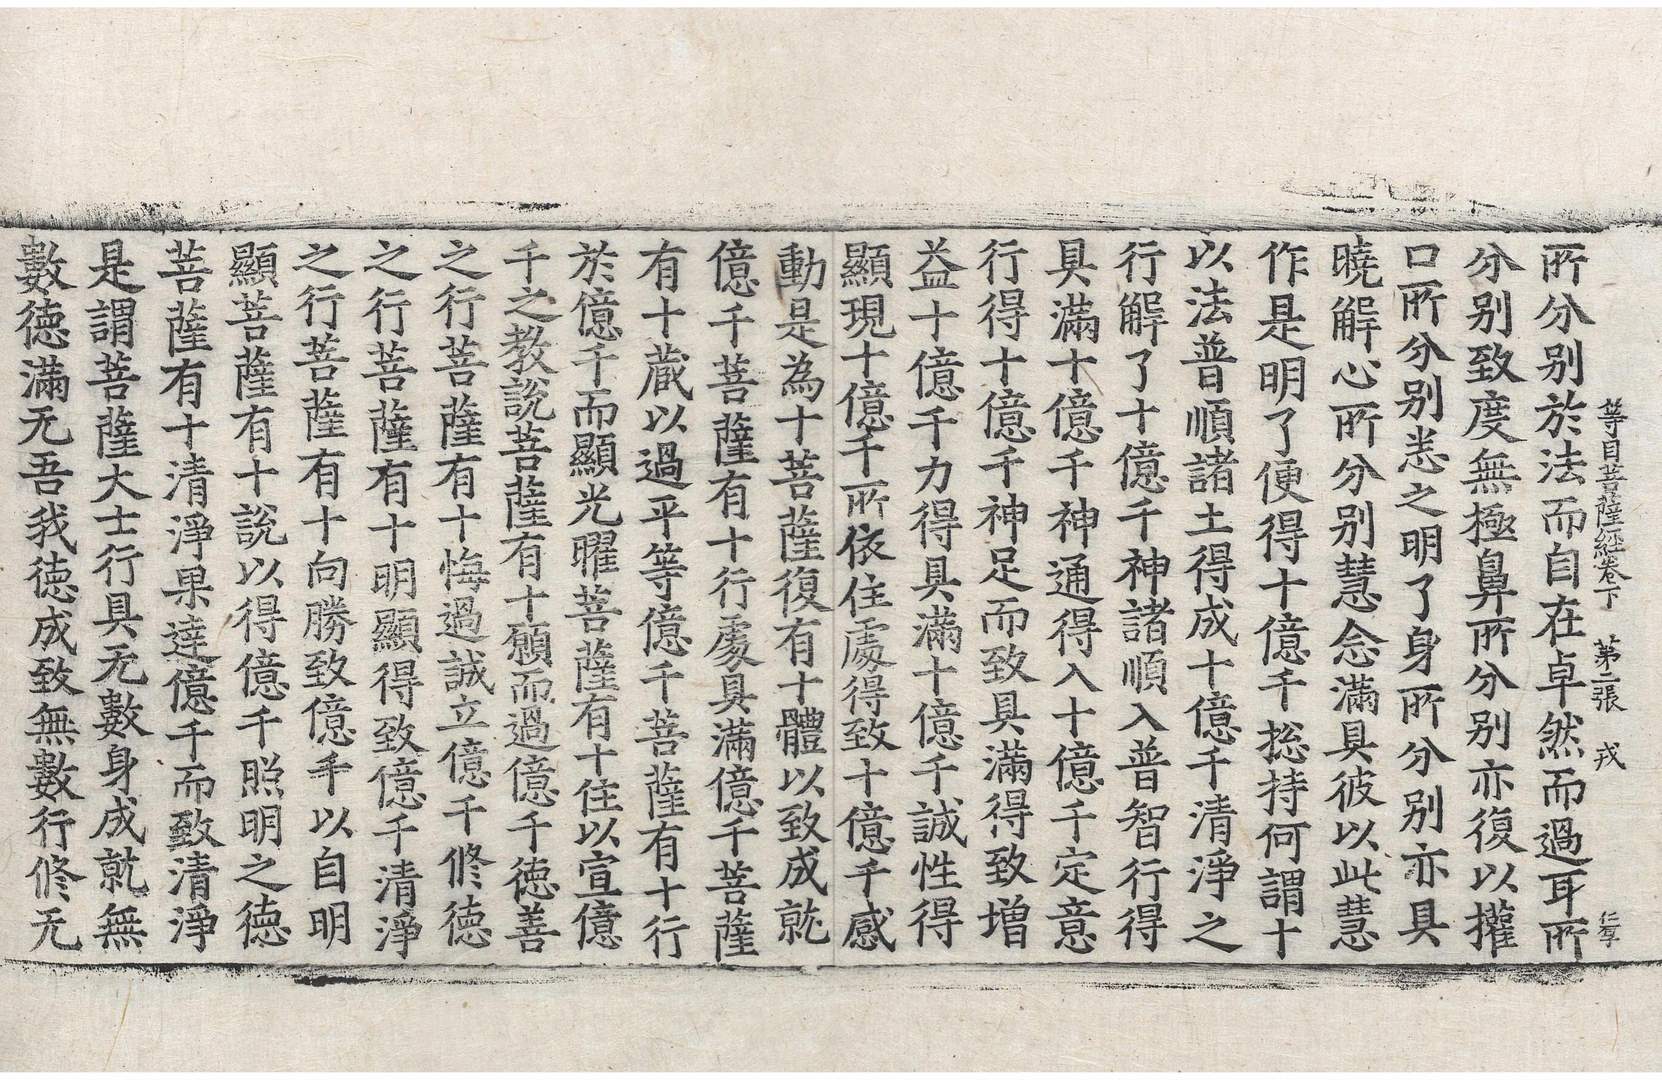 等目菩薩經卷下 第二張 戎 仁孚
所分别於法而自在卓然而過耳所
分别致度無極鼻所分别亦復以攉
口所分别悉之明了身所分别亦具
曉解心所分别慧念滿具彼以此慧
作是明了便得十億千捴持何謂十
以法普順諸土得成十億千清淨之
行解了十億千神諸順入普智行得
具滿十億千神通得入十億千定意
行得十億千神足而致具滿得致增
益十億千力得具滿十億千誠性得
顯現十億千所依住處得致十億千感
動是為十菩薩復有十體以致成就
億千菩薩有十行處具滿億千菩薩
有十蔵以過平等億千菩薩有十行
於億千而顯光曜菩薩有十住以宣億
千之教說菩薩有十願而過億千徳善
之行菩薩有十悔過誠立億千修徳
之行菩薩有十明顯得致億千清淨
之行菩薩有十向勝致億千以自明
顯菩薩有十說以得億千照明之徳
菩薩有十清淨果達億千而致清淨
是謂菩薩大士行具无數身成就無
數徳滿无吾我徳成致無數行修无